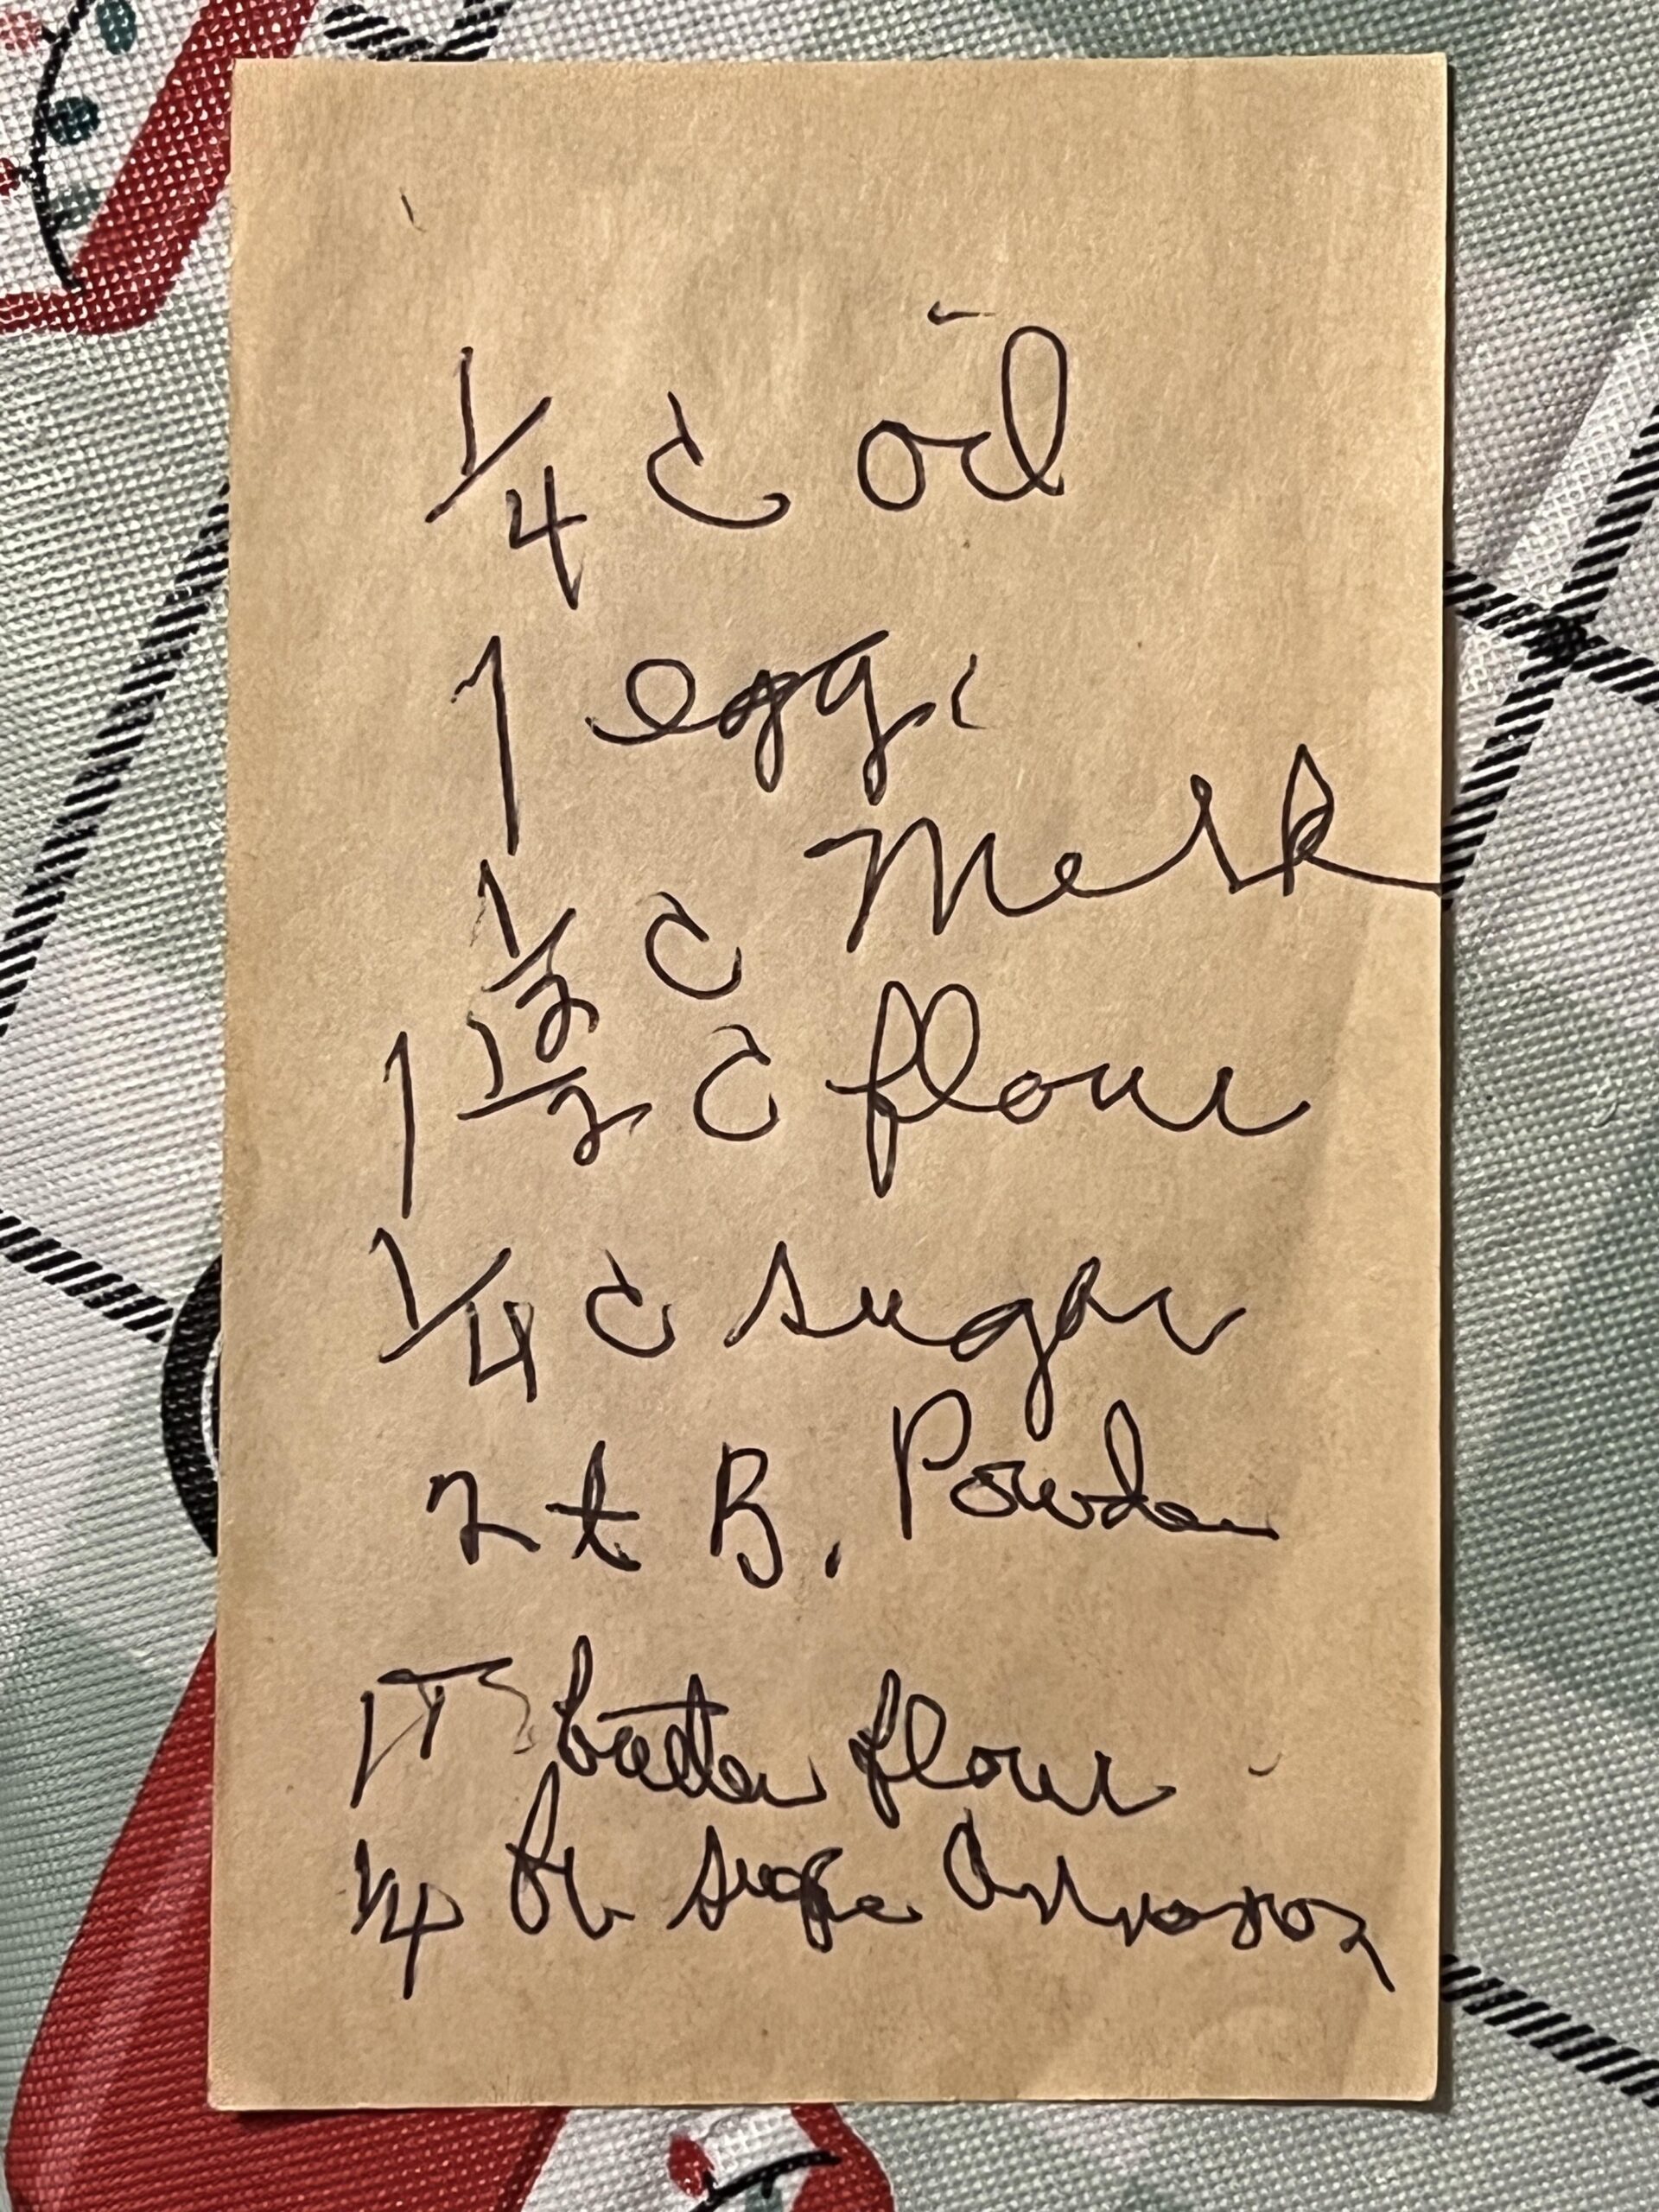 1/4 c oil
1 egg
1/2 c Melk
1 1/2 c flour
1/4 c sugar
2 t B. Powder
1 T butter flour
1/4 br sugar